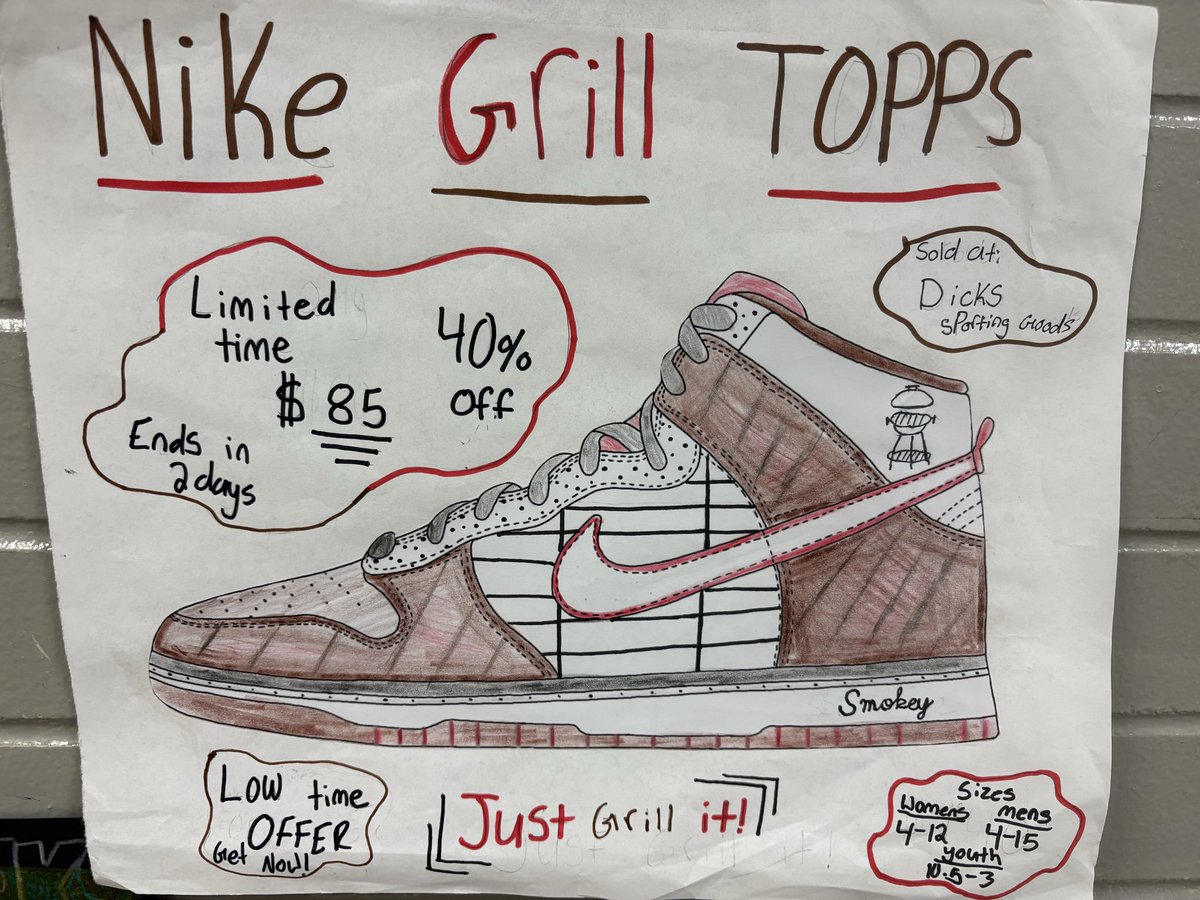 Nike Grill TOPPS
Sold at:
Dicks
sporting Goods
Limited
time
$ 85
40%
off
Ends in
2 days
Smokey
Low time
OFFER
Get Now!
Just Grill it!
Sizes
Womens
4-12
mens
4-15
youth
10.5-3